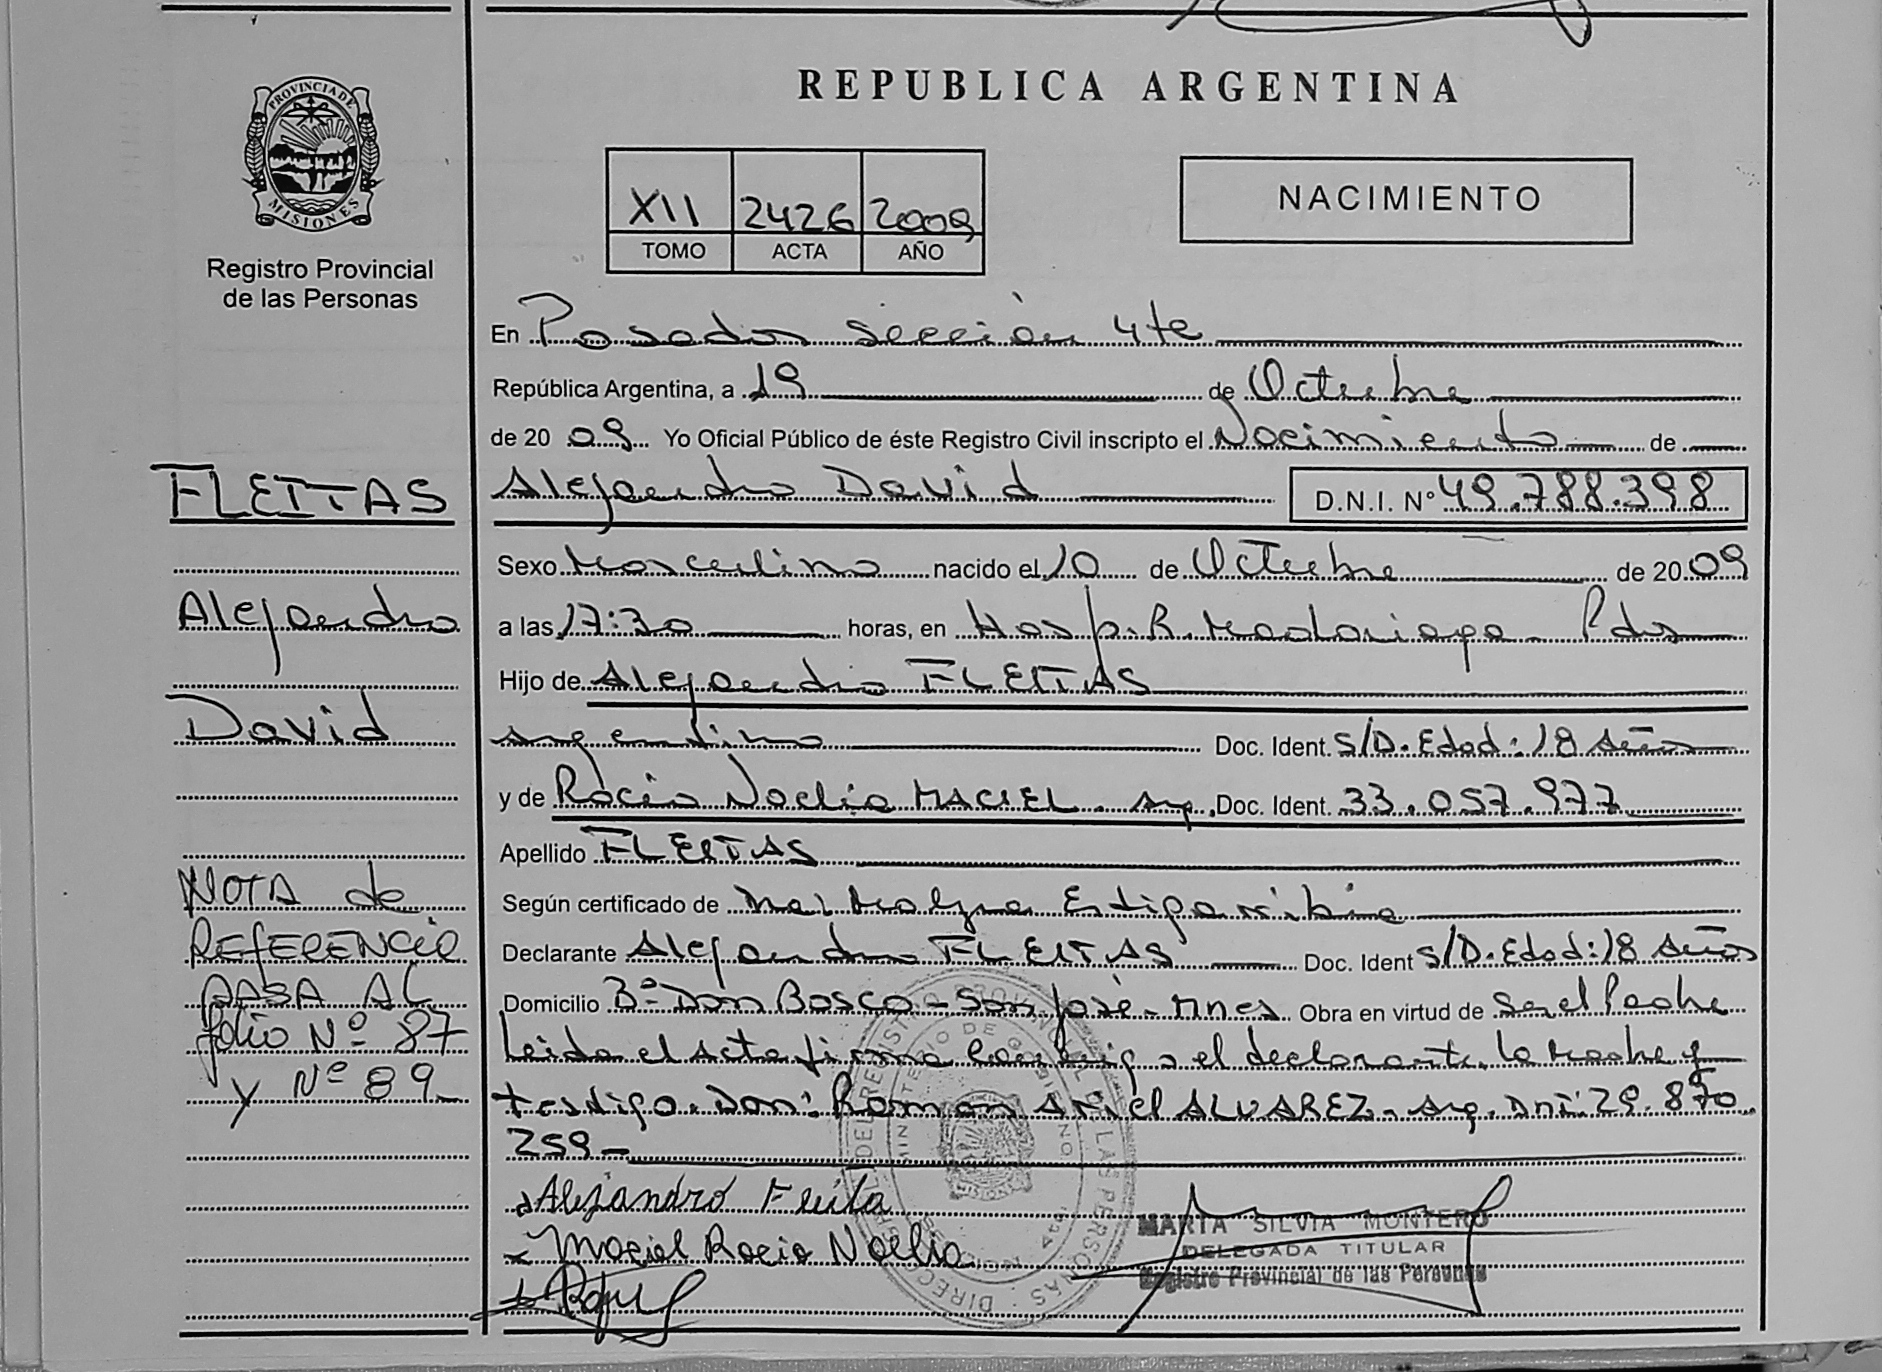 REPUBLICA ARGENTINA
PROVINCIA DE
MISIONES
Registro Provincial
de las Personas
XII 2426 2009
TOMO ACTA AÑO
NACIMIENTO
En Posadas sección 4ta
República Argentina, a 19 de Octubre
de 2009 Yo Oficial Público de éste Registro Civil inscripto el Nacimiento de
FLEITAS
Alejandro David D.N.I. Nº 49.788.398
Sexo Masculino nacido el 10 de Octubre de 2009
Alejandro
a las 17:30 horas, en Hosp. R. Madariaga Pdas
Hijo de Alejandro FLEITAS
David
argentino Doc. Ident. S/D. Edad: 18 Años
y de Rocio Noelia MACIEL - Arg. Doc. Ident. 33.057.977
Apellido FLEITAS
NOTA de
Según certificado de Estigarribia
REFERENCIA
Declarante Alejandro FLEITAS Doc. Ident S/D. Edad: 18 Años
PASA AL
Domicilio Bº Don Bosco - San José - Mnes Obra en virtud de Ser el Padre
folio Nº 87
Leida el Acta firma conmigo el declarante, la Madre y
y Nº 89_
testigo. Don: Roman Ariel ALVAREZ - Arg. Dni: 29.870.
259 -
Alejandro Fleita
Maciel Rocio Noelia
MARIA SILVIA MONTERO
DELEGADA TITULAR
Registro Provincial de las Personas